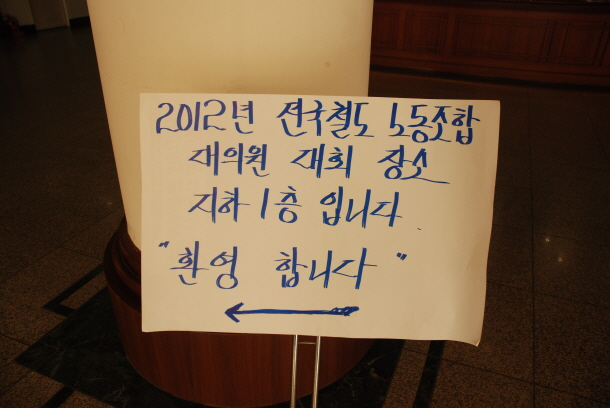 2012년 전국철도 노동조합
대의원 대회 장소
지하 1층 입니다
"환영 합니다"